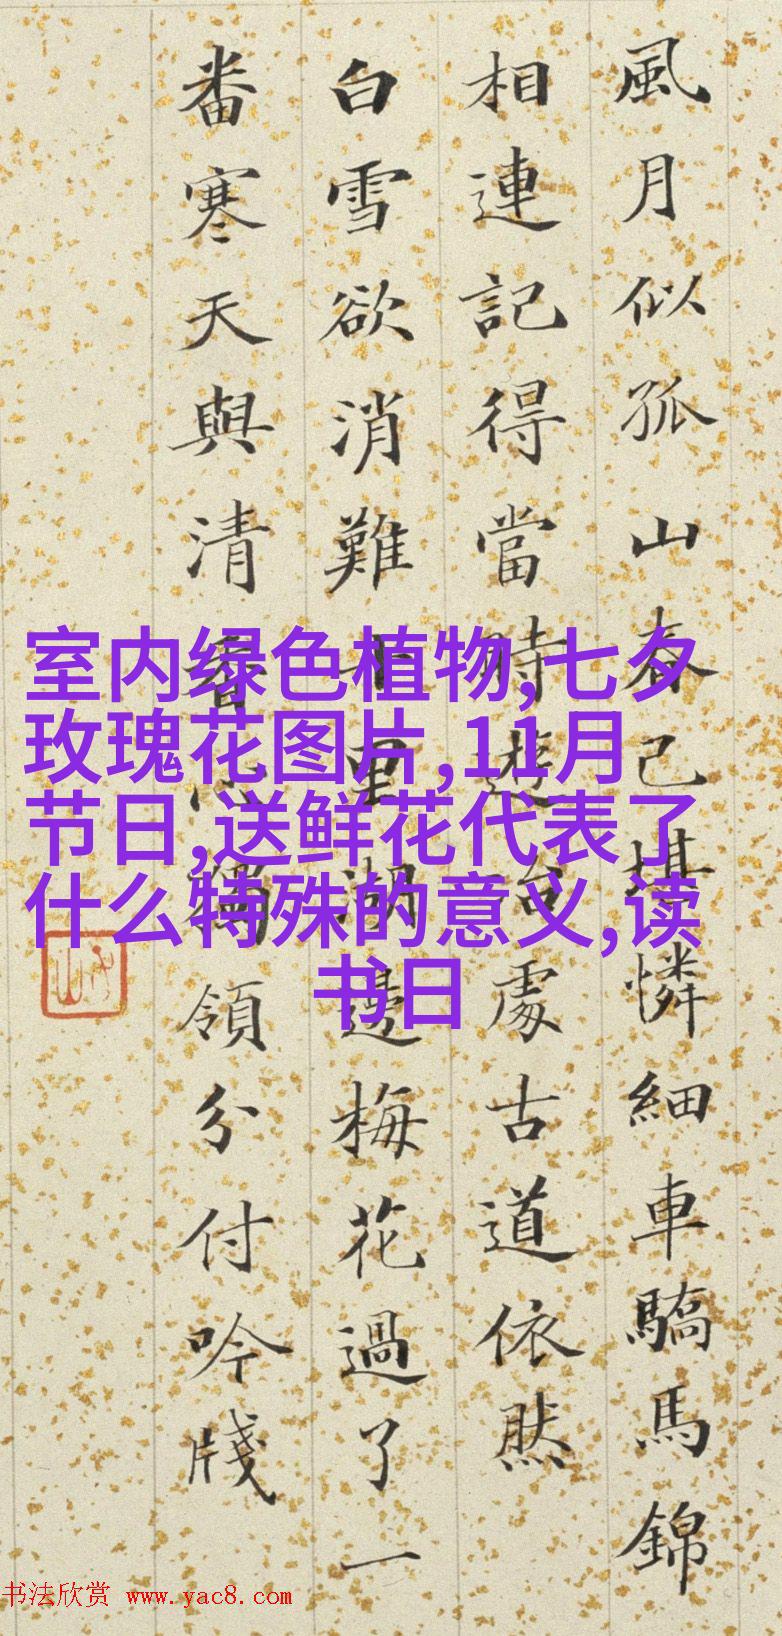 風月似孤山春己堪憐細車驕馬錦
相連記得當時遊冶處古道依然
白雪欲消難十里湖邊梅花過了一
番寒天與清香心獨領分付吟牋
室内绿色植物,七夕
玫瑰花图片,11月
节日,送鲜花代表了
什么特殊的意义,读
书日
书法欣赏 www.yac8.com